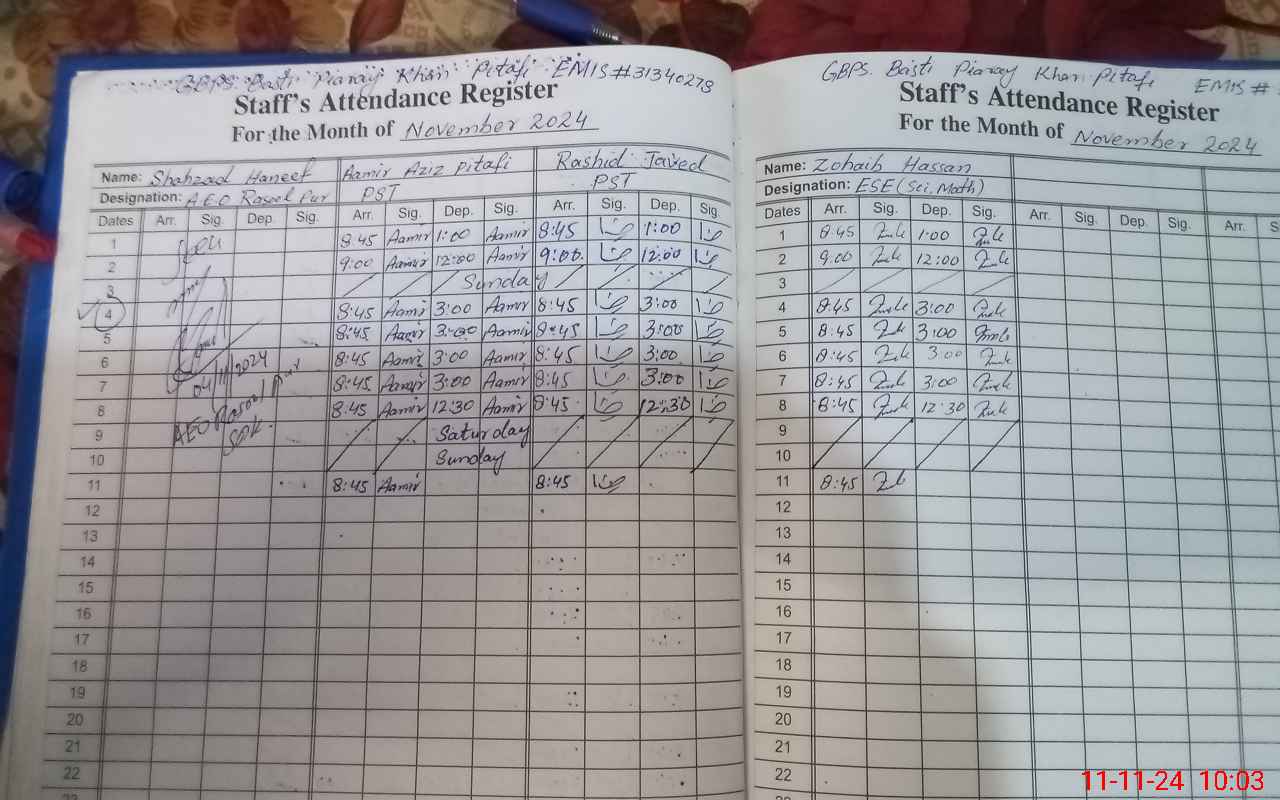 GBPS. Basti Piaray Khan Pitafi EMIS # 31340278
Staff's Attendance Register
For the Month of November 2024
Name: Shahzad Haneef Aamir Aziz Pitafi Rashid Javed
Designation: AEO Rasool Pur PST PST
Dates Arr. Sig. Dep. Sig. Arr. Sig. Dep. Sig. Arr. Sig. Dep. Sig.
1 8:45 Aamir 1:00 Aamir 8:45 1:00
2 9:00 Aamir 12:00 Aamir 9:00 12:00
3 Sunday
4 8:45 Aamir 3:00 Aamir 8:45 3:00
5 8:45 Aamir 3:00 Aamir 8:45 3:00
6 8:45 Aamir 3:00 Aamir 8:45 3:00
7 04/11/2024 8:45 Aamir 3:00 Aamir 8:45 3:00
8 AEO Rasool Pur 8:45 Aamir 12:30 Aamir 8:45 12:30
9 Saturday
10 Sunday
11 8:45 Aamir 8:45
12
13
14
15
16
17
18
19
20
21
22
GBPS. Basti Piaray Khan Pitafi EMIS #
Staff's Attendance Register
For the Month of November 2024
Name: Zohaib Hassan
Designation: ESE (Sci. Math)
Dates Arr. Sig. Dep. Sig. Arr. Sig. Dep. Sig. Arr.
1 8:45 1:00
2 9:00 12:00
3
4 8:45 3:00
5 8:45 3:00
6 8:45 3:00
7 8:45 3:00
8 8:45 12:30
9
10
11 8:45
12
13
14
15
16
17
18
19
20
21
22
11-11-24 10:03